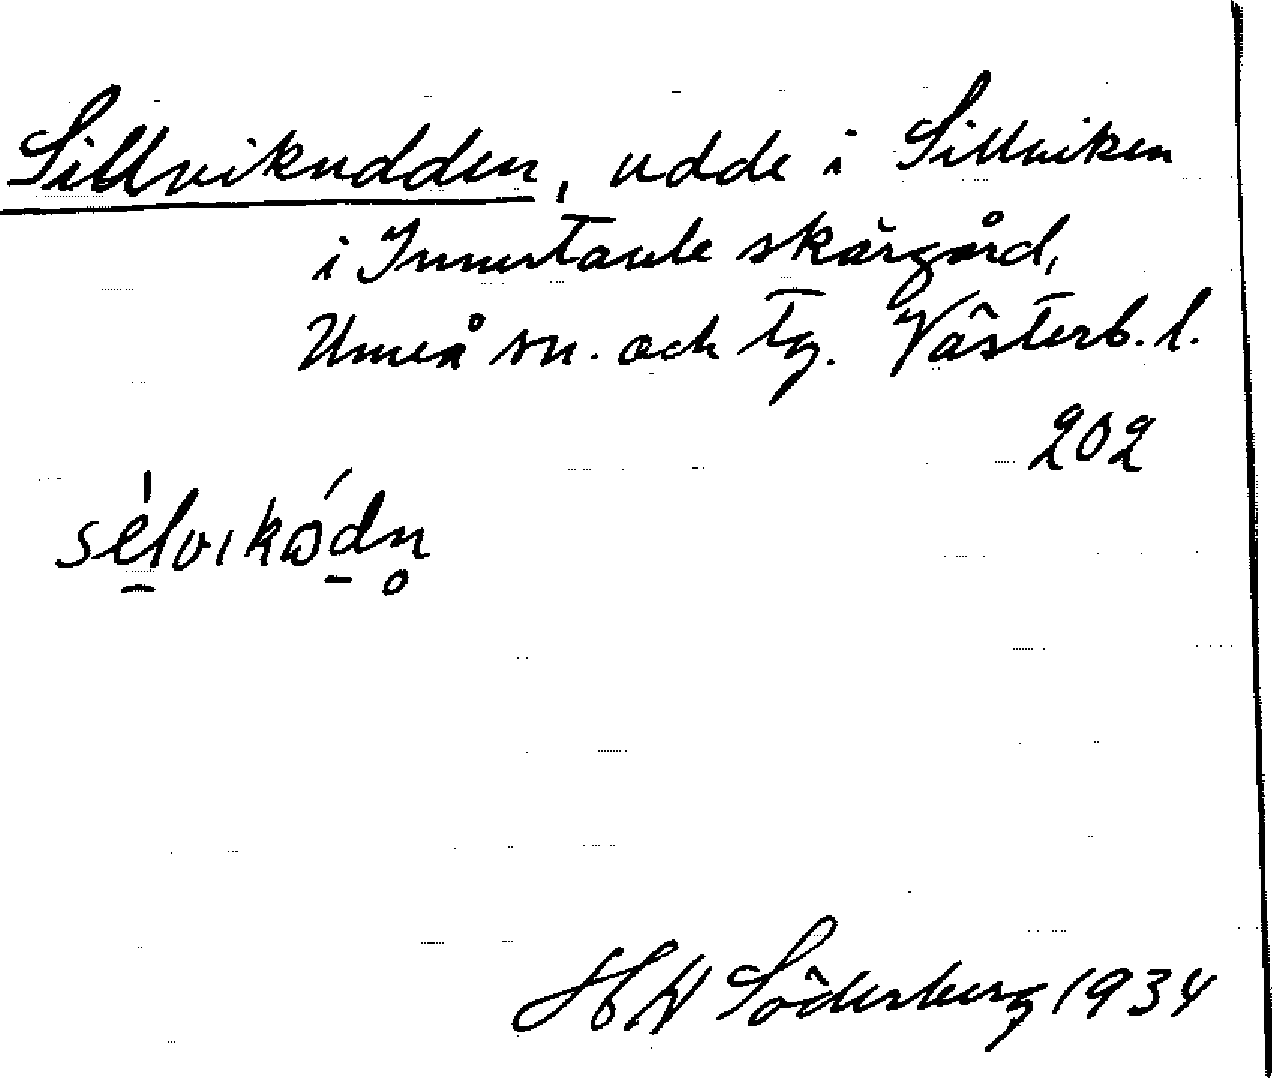 Sillvikudden, udde i Sillviken
i Innertavle skärgård,
Umeå sn. och tg. Västerb. l.
202
sèlvikódn̥
HW Söderberg 1934